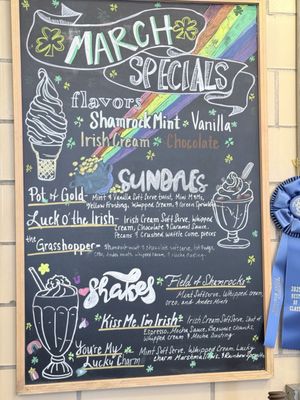 MARCH
SPECIALS
flavors
Shamrock Mint · Vanilla
Irish Cream · Chocolate
SUNDAES
Pot of Gold- Mint & Vanilla Soft Serve twist, Mini M&Ms,
Yellow Frosting, Whipped Cream, & Green Sprinkles
Luck O' the Irish- Irish Cream Soft Serve, Whipped
Cream, Chocolate & Caramel Sauce,
Pecans & crushed waffle cone pieces
the Grasshopper- Shamrock mint & chocolate soft serve, hot fudge,
Oreo, Andes mints, whipped cream & mocha dusting
Shakes
Field of Shamrocks -
Mint Soft Serve, Whipped cream,
Oreo, and Andes Mint
Kiss Me I'm Irish - Irish Cream Soft Serve, Shot of
Espresso, Mocha Sauce, Brownie Chunks,
Whipped Cream & Mocha Dusting
You're My
Lucky Charm
- Mint Soft Serve, Whipped Cream, Lucky
Charm Marshmallows, & Rainbow